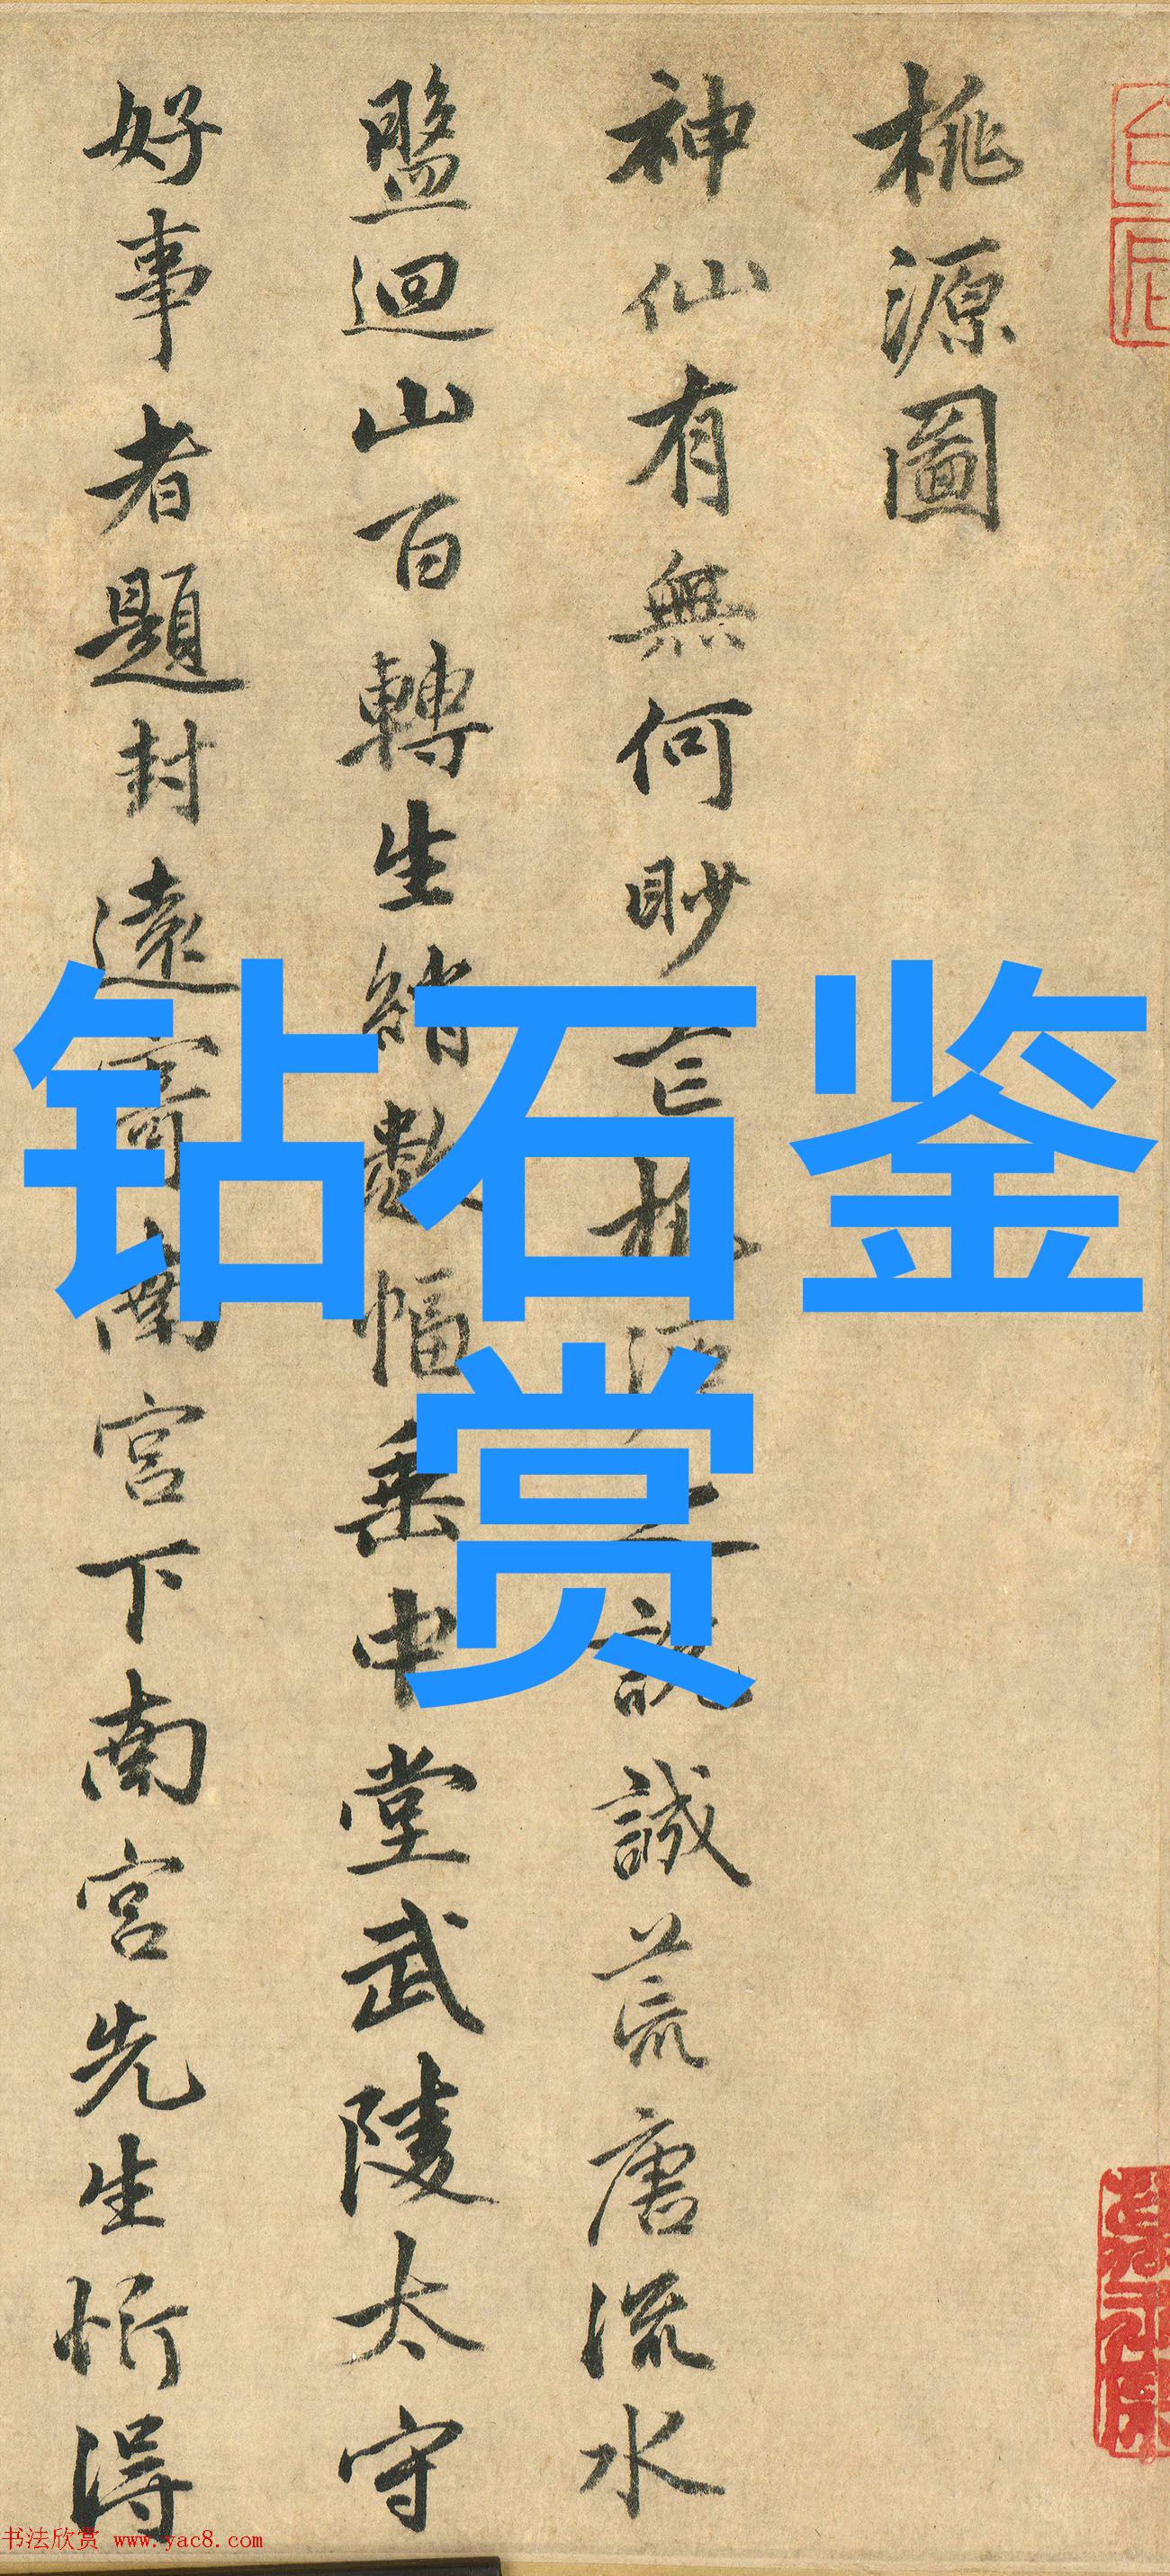 桃源圖
神仙有無何眇芒桃源之說誠荒唐流水
盤迴山百轉生綃數幅垂中堂武陵太守
好事者題封遠寄南宮下南宮先生忻得
钻石鉴
赏
书法欣赏 www.yac8.com